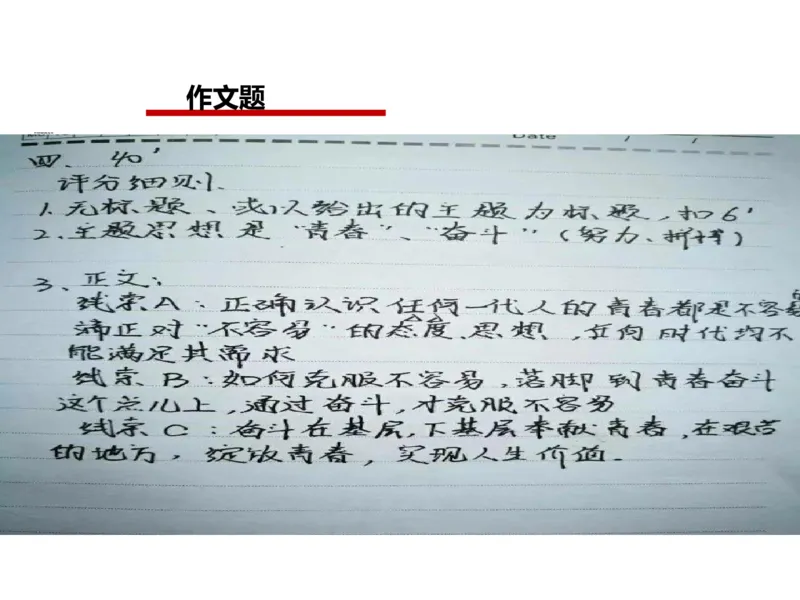 作文题
Date / /
四、 40'
评分细则、
1. 无标题、或以给出的主题为标题，扣6'
2. 主题思想是"青春"、"奋斗"（努力、拼搏）
3、正文：
线索A：正确认识任何一代人的青春都是不容易的
端正对"不容易"的态度、思想，任何时代均不
能满足其需求
线索 B：如何克服不容易，落脚到青春奋斗
这个点儿上，通过奋斗，才克服不容易
线索 C：奋斗在基层，下基层奉献青春，在艰苦
的地方，绽放青春，实现人生价值.